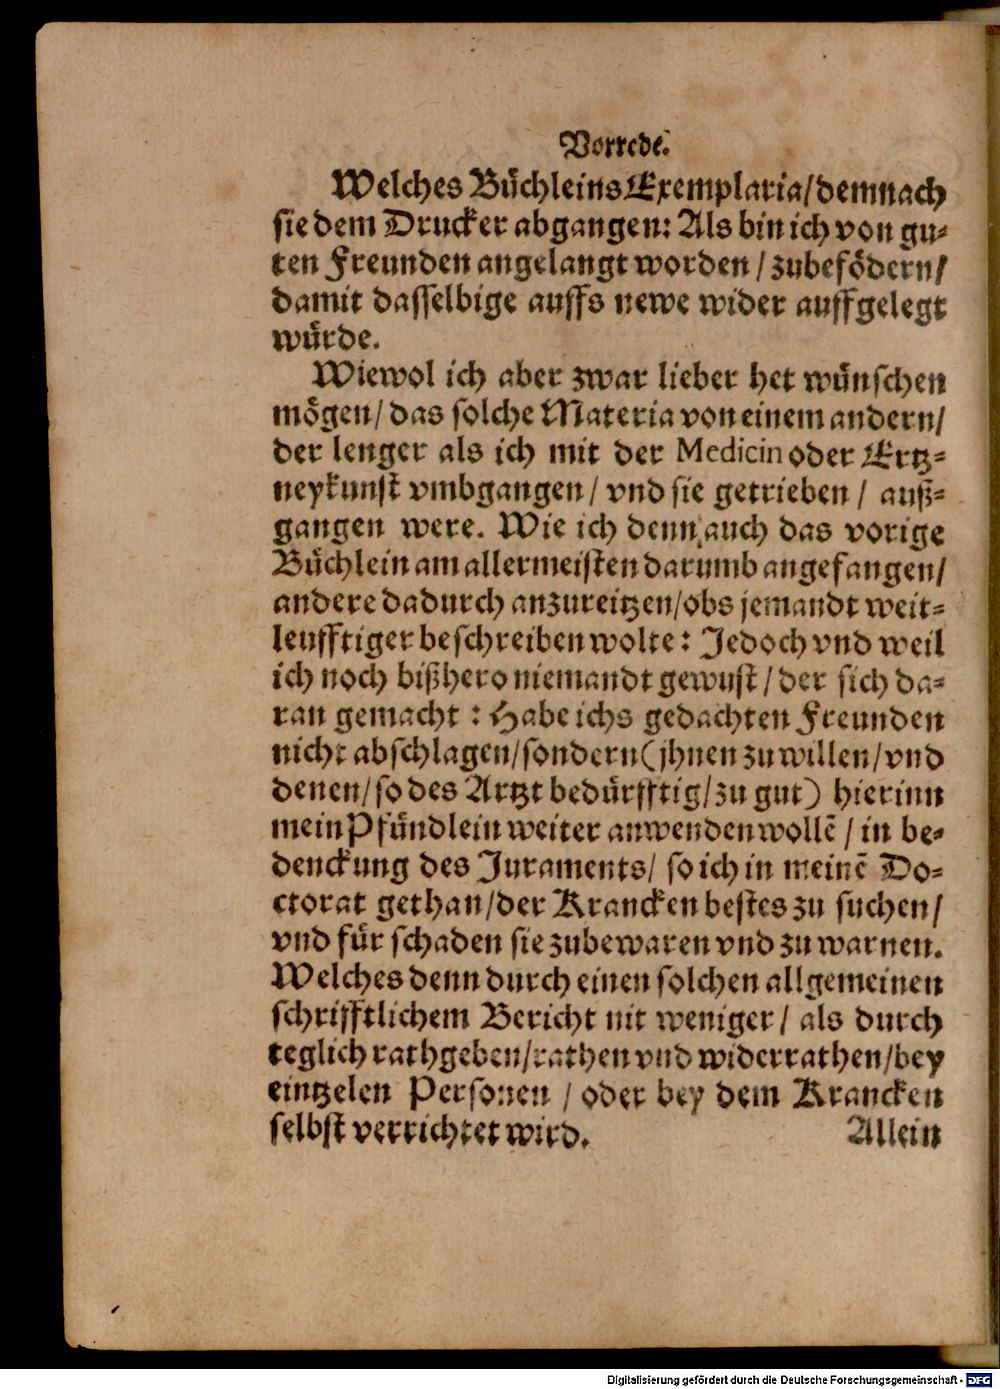 Vorrede.
Welches Bůchleins Exemplaria/demnach
sie dem Drucker abgangen: Als bin ich von gu-
ten Freunden angelangt worden / zubefődern/
damit dasselbige auffs newe wider auffgelegt
wůrde.
Wiewol ich aber zwar lieber het wůnschen
mőgen/ das solche Materia von einem andern/
der lenger als ich mit der Medicin oder Ertz-
neykunst vmbgangen / vnd sie getrieben / auß-
gangen were. Wie ich denn auch das vorige
Bůchlein am allermeisten darumb angefangen/
andere dadurch anzureitzen/obs jemandt weit-
leufftiger beschreiben wolte: Jedoch vnd weil
ich noch bißhero niemandt gewust / der sich da-
ran gemacht : Habe ichs gedachten Freunden
nicht abschlagen/sondern (jhnen zu willen/vnd
denen/so des Artzt bedürfftig/zu gut) hierinn
mein Pfůndlein weiter anwenden wollē / in be-
denckung des Juraments/ so ich in meinē Do-
ctorat gethan/der Krancken bestes zu suchen/
vnd fůr schaden sie zubewaren vnd zu warnen.
Welches denn durch einen solchen allgemeinen
schrifftlichem Bericht nit weniger / als durch
teglich rathgeben/rathen vnd widerrathen/bey
eintzelen Personen / oder bey dem Krancken
selbst verrichtet wird.
Allein
Digitalisierung gefördert durch die Deutsche Forschungsgemeinschaft - DFG